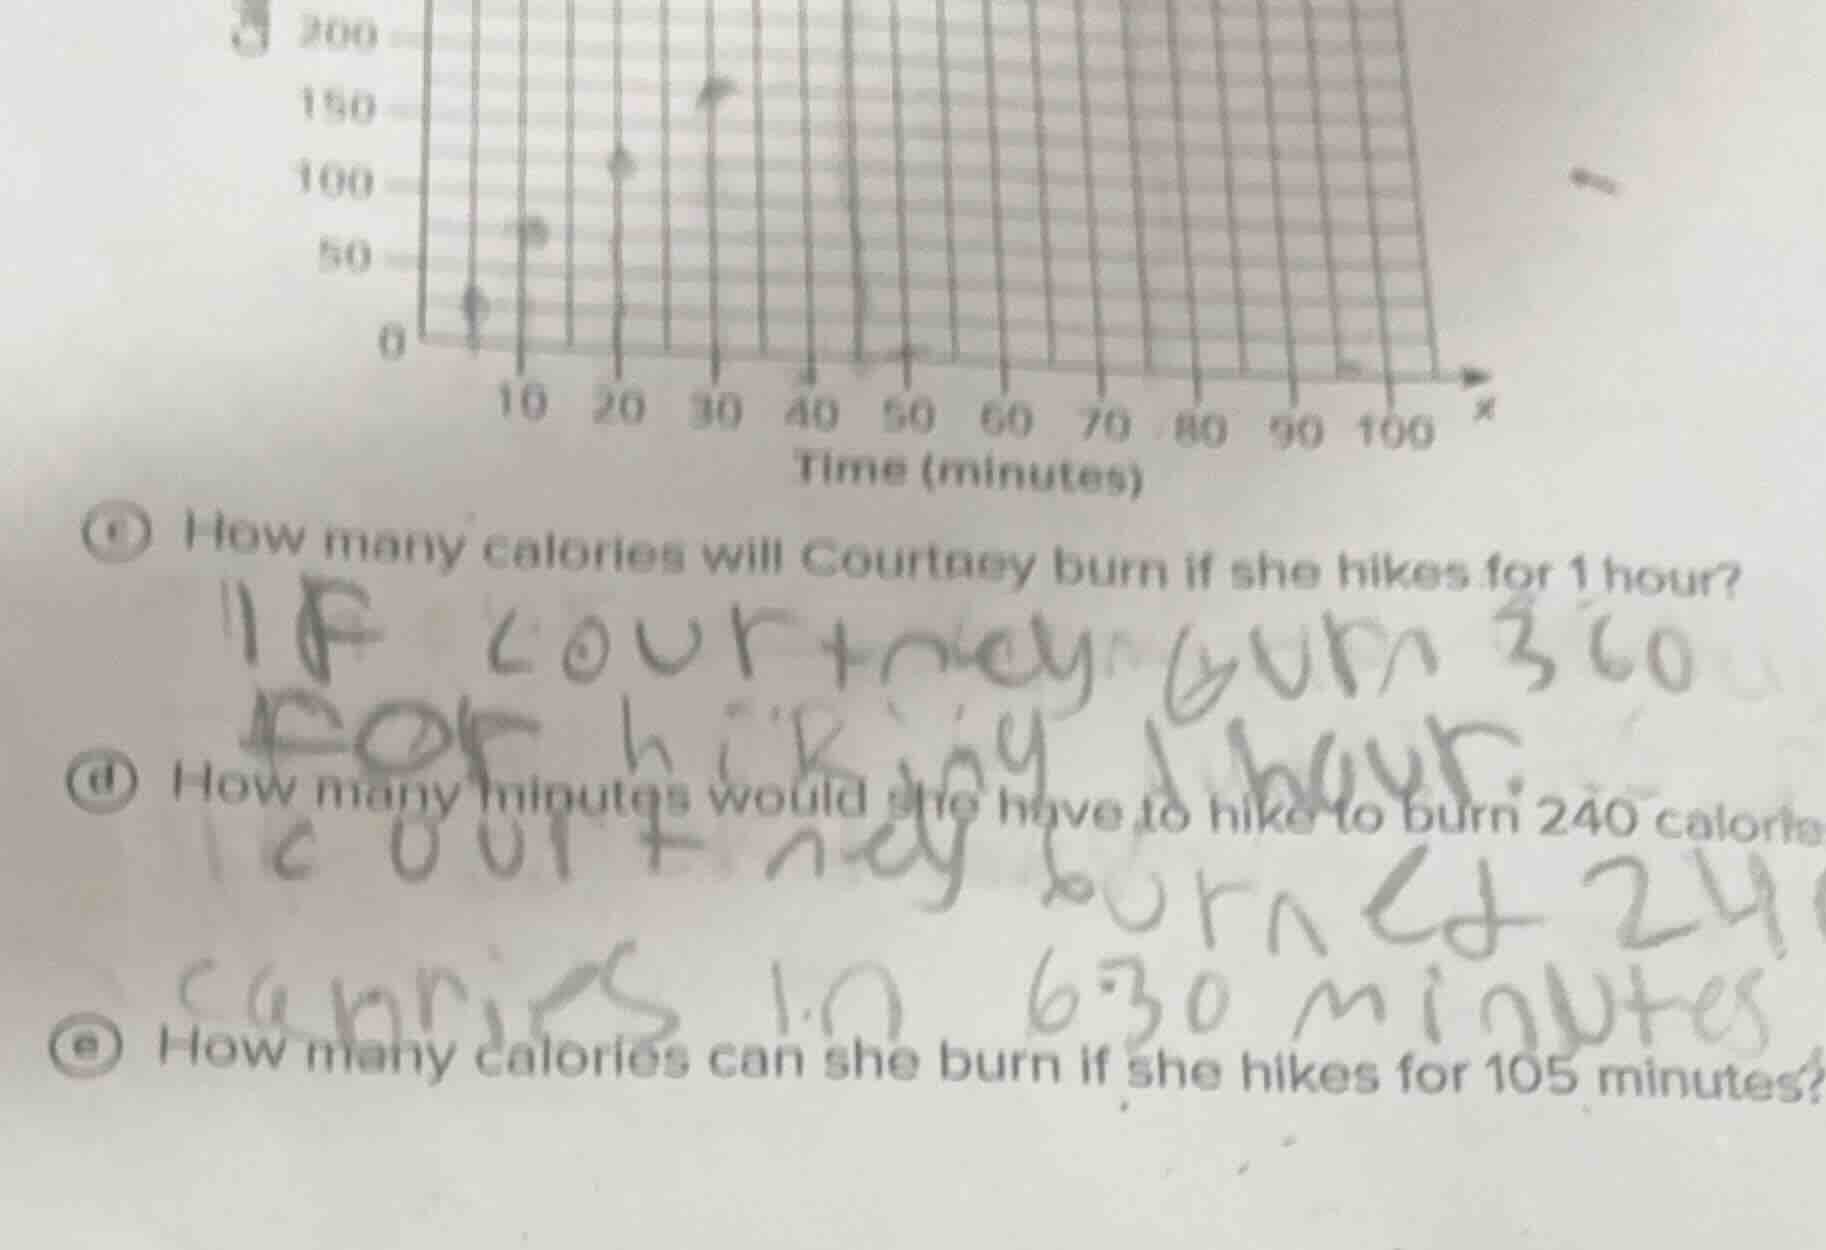 200
150
100
50
0
10 20 30 40 50 60 70 80 90 100 x
Time (minutes)
c How many calories will Courtney burn if she hikes for 1 hour?
IF courtney burn 360
For hiking 1 hour.
d How many minutes would she have to hike to burn 240 calorie
courtney burned 24
canries in 6:30 minutes
e How many calories can she burn if she hikes for 105 minutes?